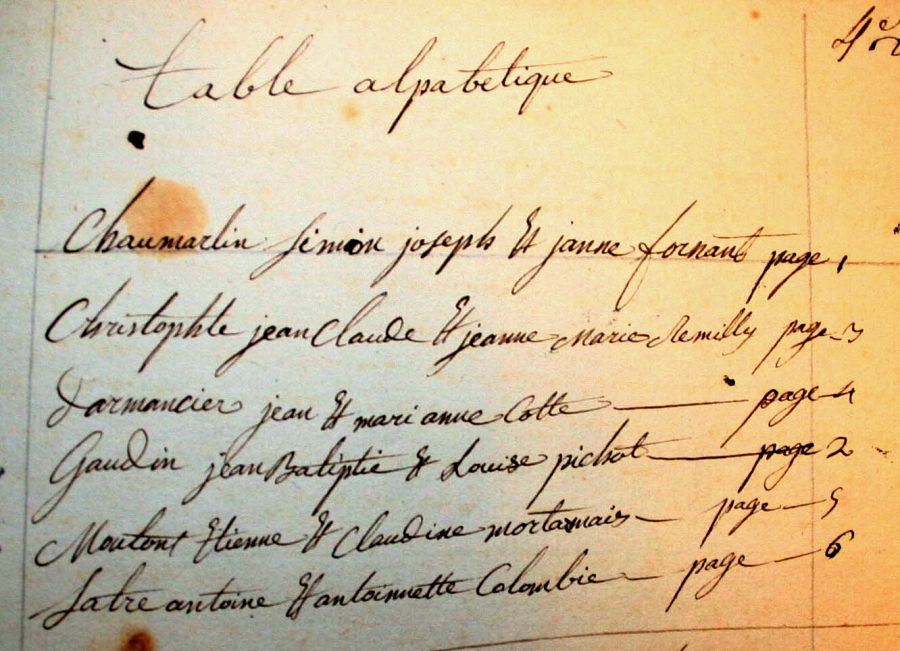 4e
table alpabetique
Chaumartin Simon joseph Et janne fornant page 1
Christophte jean Claude Et jeanne Marie Remilly page 3
Darmancier jean Et marianne Cotte page 4
Gaudin jean Batiptie Et Louise pichot page 2
Moutont Etienne Et Claudine mortamais page 5
Satre antoine Et antoinnette Colombie page 6